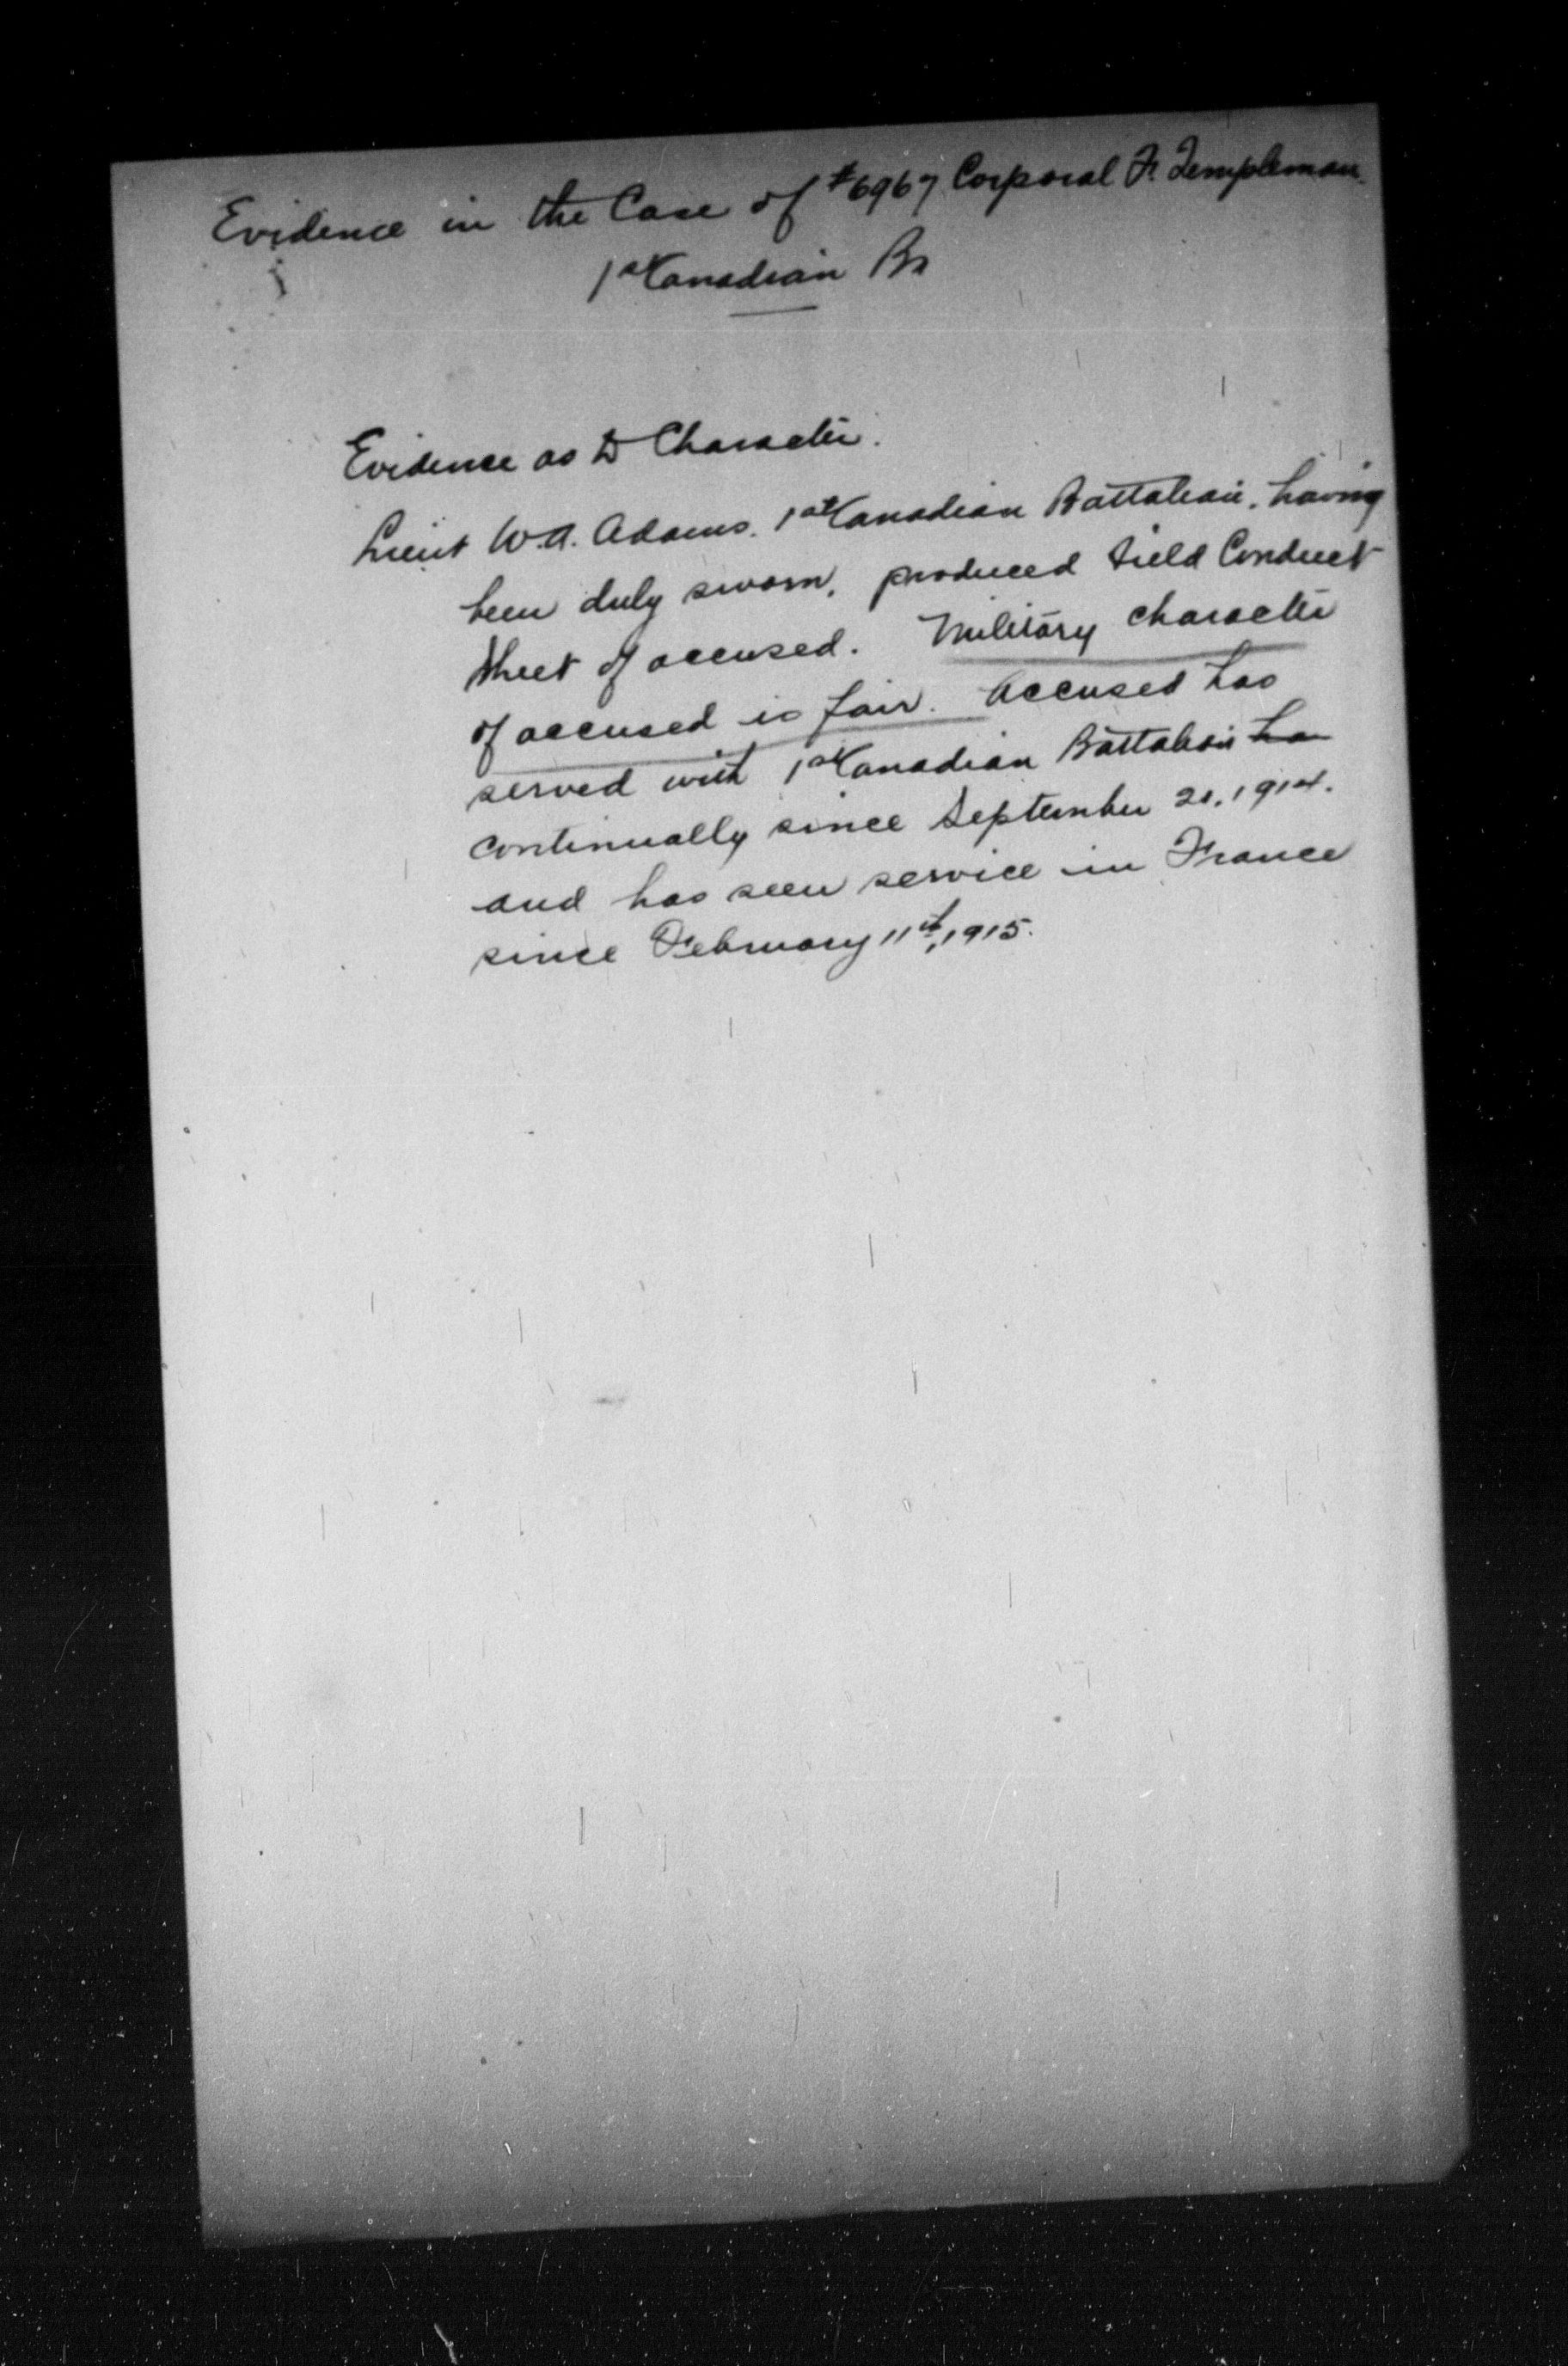 Evidence in the Case of #6967 Corporal F. Templeman.
1st Canadian Bn
Evidence as to Character.
Lieut W.A. Adams. 1st Canadian Battalion, having
been duly sworn, produced Field Conduct
Sheet of accused. Military character
of accused is fair. Accused has
served with 1st Canadian Battalion ha
continually since September 21, 1914.
and has seen service in France
since February 11th, 1915.